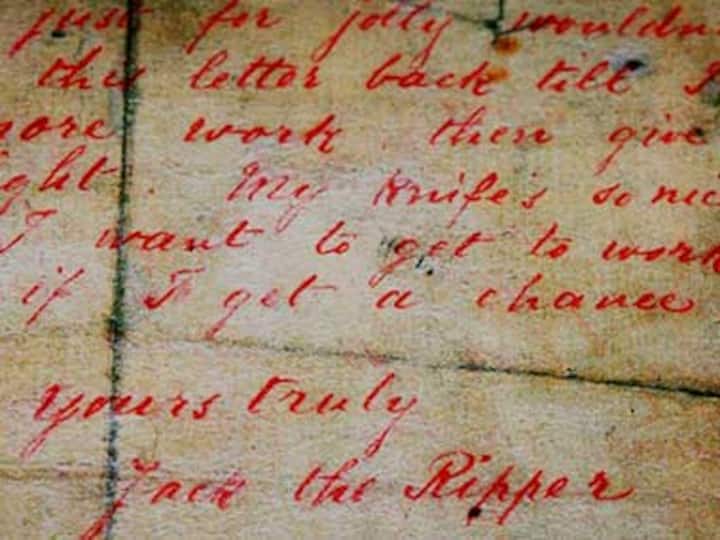 just for jolly wouldn
this letter back till I
more work then give
ght. My knife's so nic
I want to get to work
if I get a chance
yours truly
Jack the Ripper